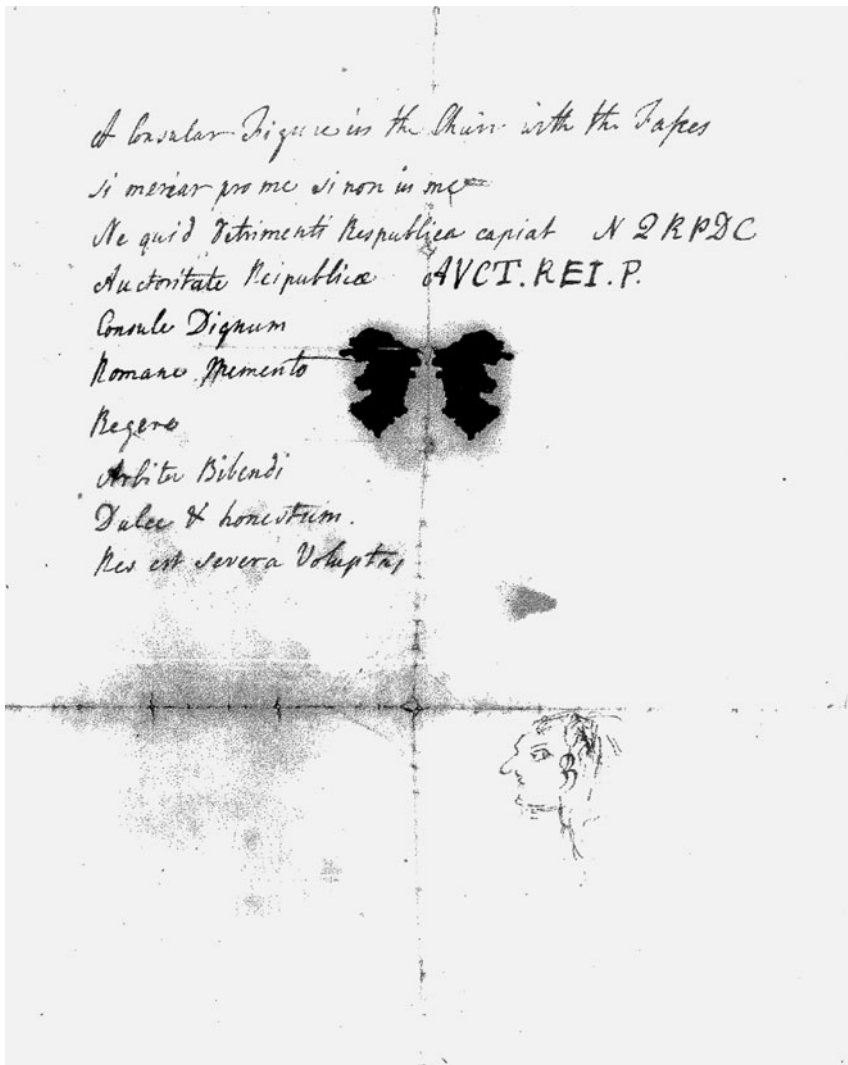 A Consular Figure in the Chair with the Fasces
si merear pro me si non in me
Ne quid Detrimenti Respublica capiat N Q R P D C
Auctoritate Reipublicæ AVCT. REI. P.
Consule Dignum
Romane Memento
Regere
Arbiter Bibendi
Dulce & honestum.
Res est severa Voluptas